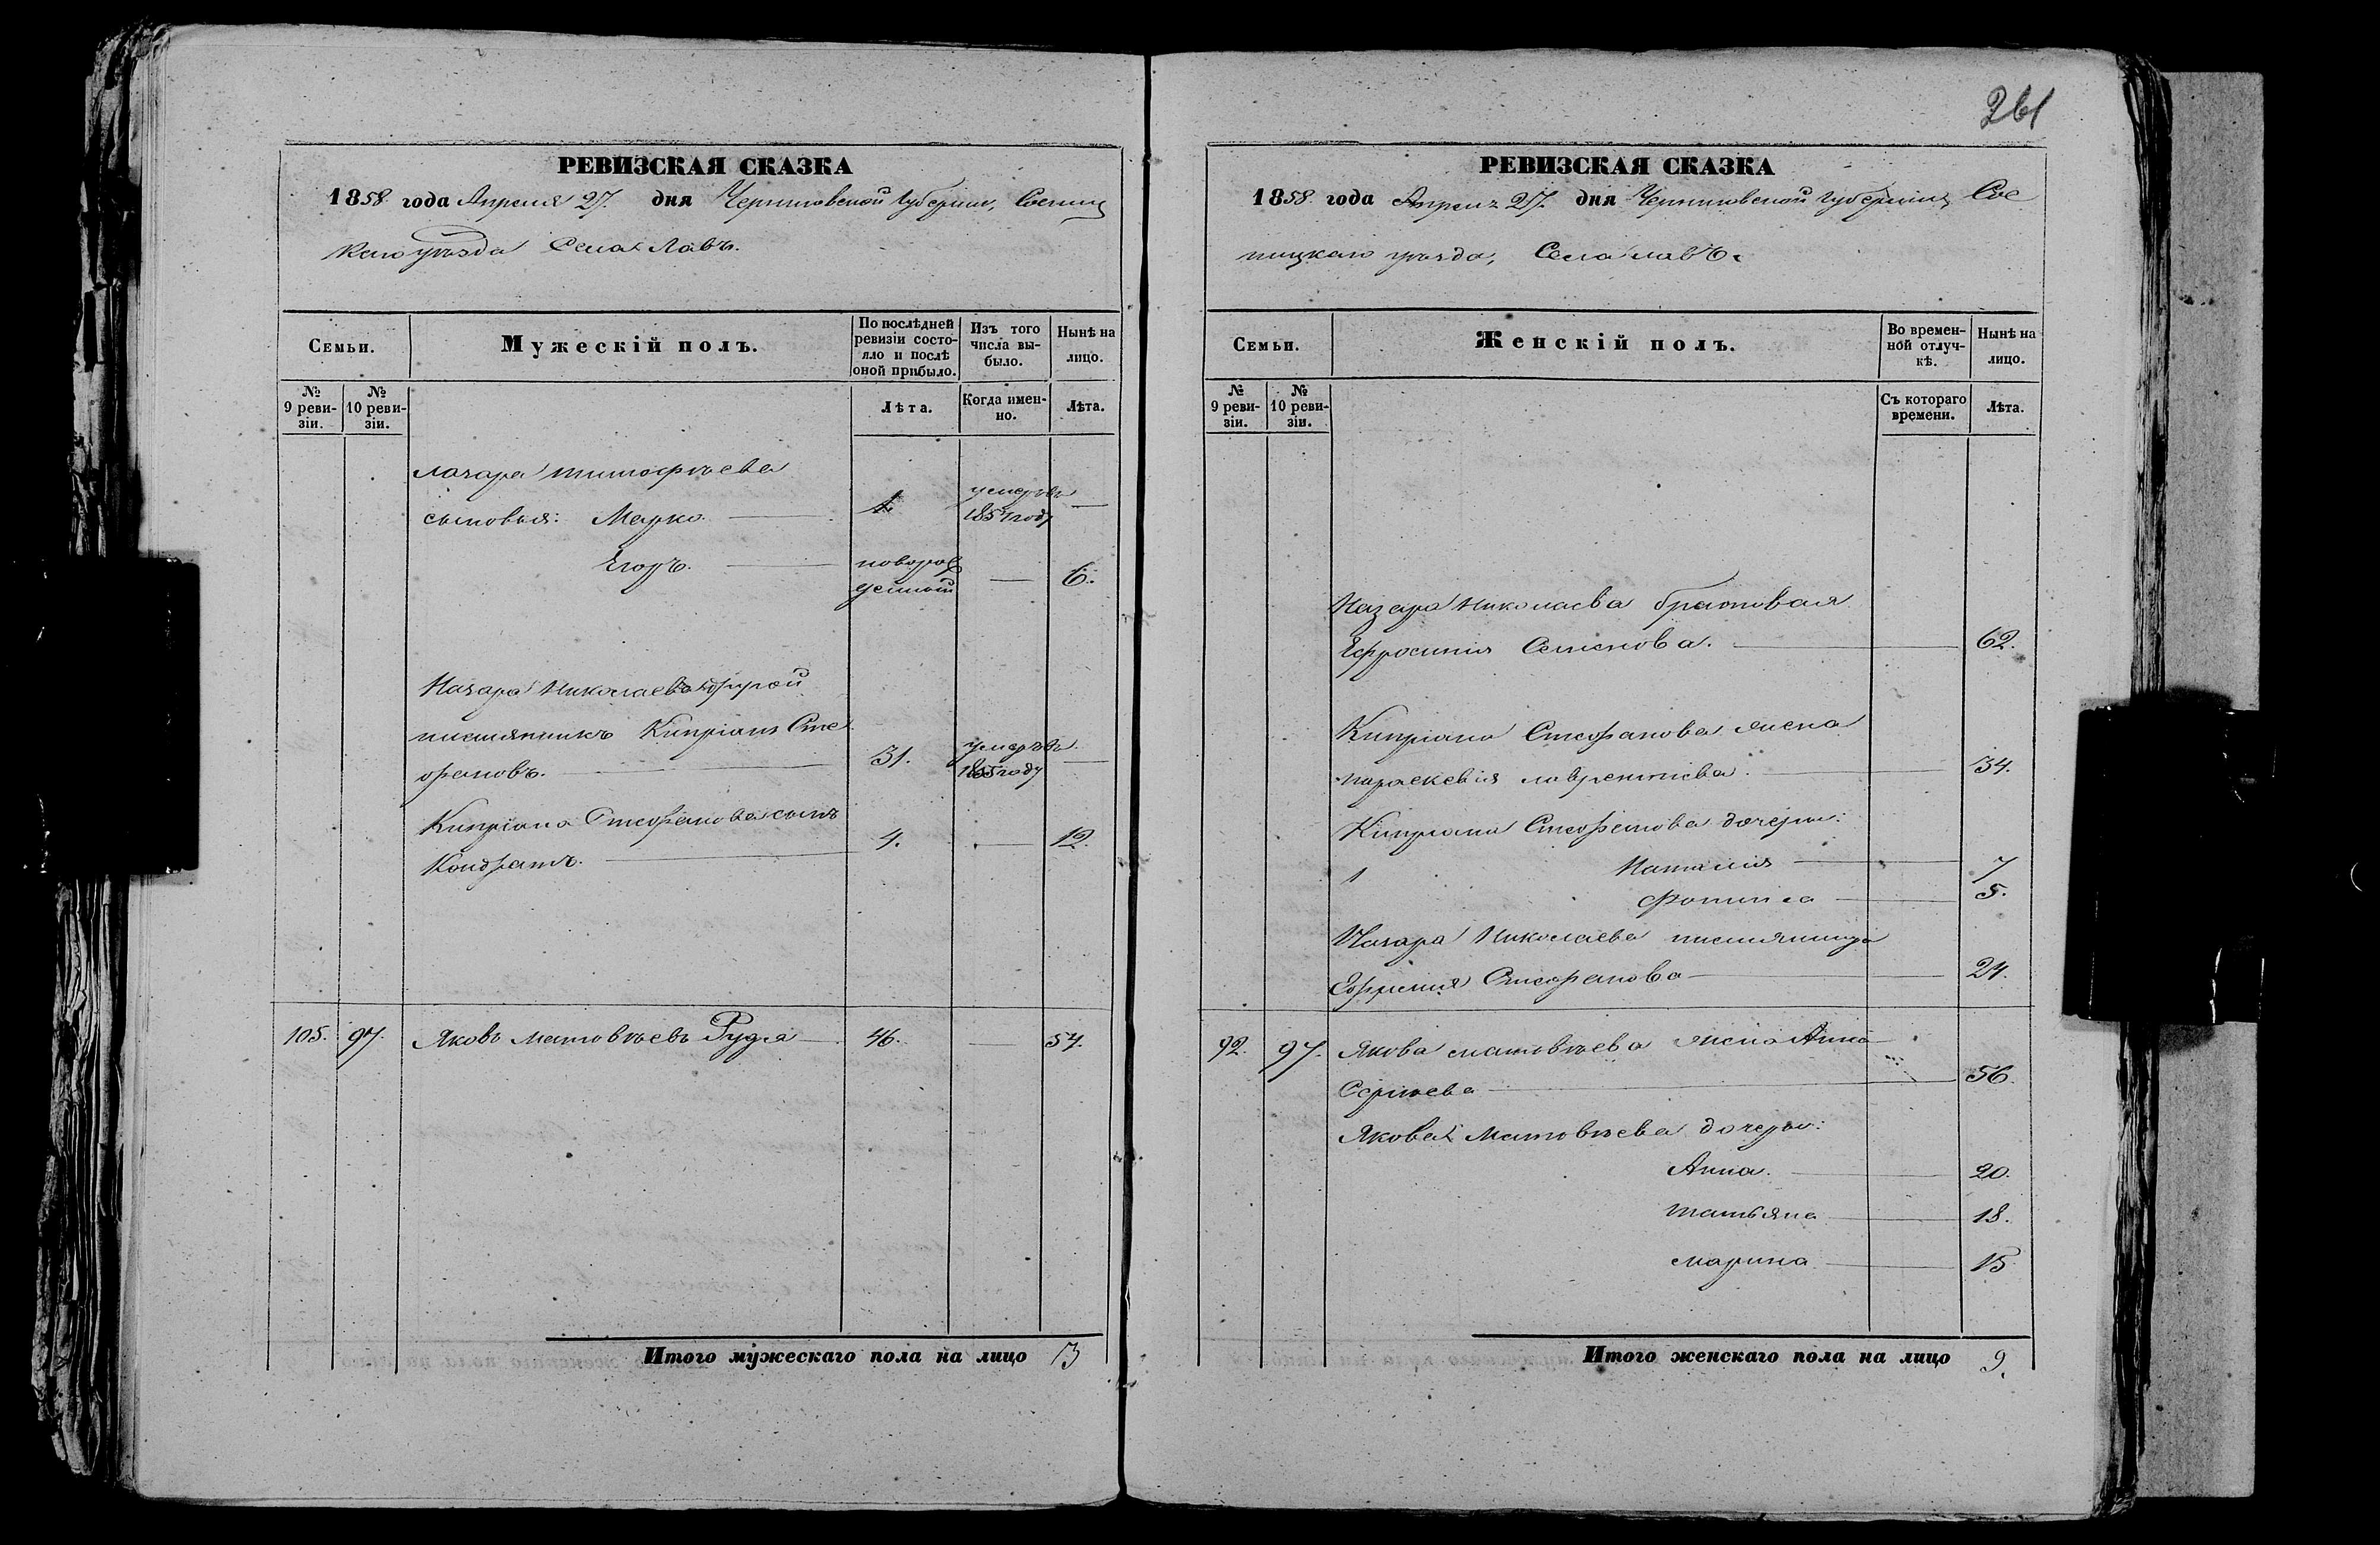 261
РЕВИЗСКАЯ СКАЗКА
1858 года Апреля 27. дня Черниговской Губернии, Сосниц
каго уѣзда Села Лавъ.
Семьи.
Мужескій полъ.
По послѣдней ревизіи состояло и послѣ оной прибыло.
Изъ того числа выбыло.
Нынѣ на лицо.
№ 9 ревизіи.
№ 10 ревизіи.
Лѣта.
Когда именно.
Лѣта.
Лазаря Тимофѣева
сыновья: Марко. умеръ въ
Егоръ. новорож
денный 6.
Назара Николаева другой
племянникъ Кипріянъ Сте
фановъ. 31. умеръ въ
1855 году
Кипріана Стефанова сынъ
Кондратъ. 4. 12.
105. 97. Яковъ Матвѣевъ Рудя 46. 54.
Итого мужескаго пола на лицо 3
РЕВИЗСКАЯ СКАЗКА
1858 года Апреля 27. дня Черниговской губерніи, Сос
ницкаго уѣзда, Села Лавъ.
Семьи.
Женскій полъ.
Во временной отлучкѣ.
Нынѣ на лицо.
№ 9 ревизіи.
№ 10 ревизіи.
Съ котораго времени.
Лѣта.
Назара Николаева братовая
Ефросинія Семенова. 62.
Кипріана Стефанова жена
Параскевія Лаврентіева. 34.
Кипріана Стефанова дочери:
Наталія 7
5.
Назара Николаева племянница
Стефанова 24.
92. 97. Якова Матвѣева жена Анна
Сергѣева 56.
Якова Матвѣева дочери:
Анна. 20.
Татьяна 18.
Марина 15
Итого женскаго пола на лицо 9.